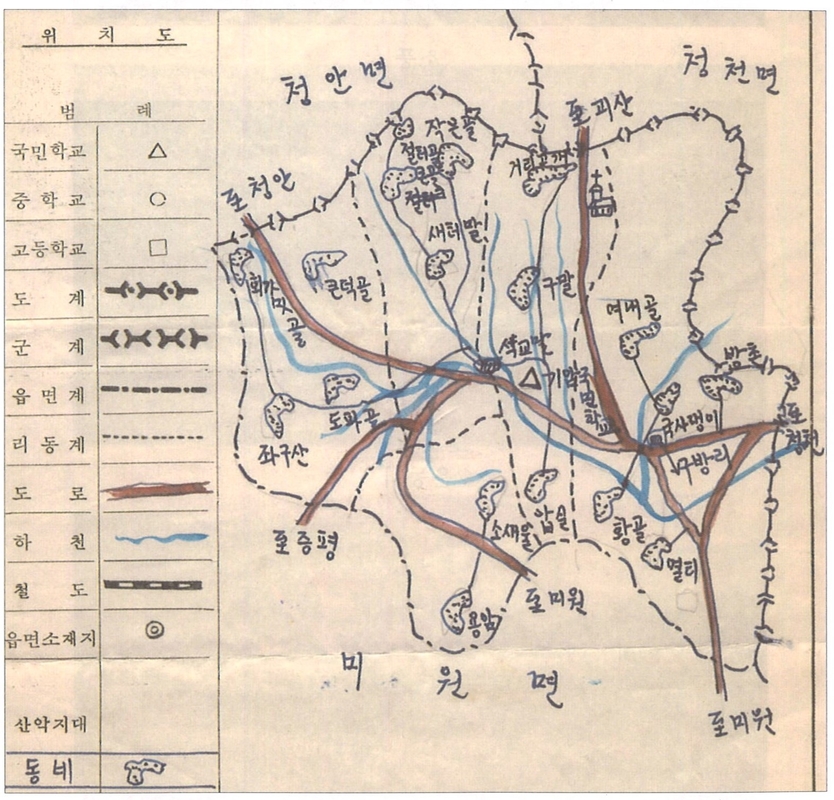 위 치 도
범 례
국민학교
중 학 교
고등학교
도 계
군 계
읍 면 계
리 동 계
도 로
하 천
철 도
읍면소재지
산악지대
동네
청안면
청천면
至괴산
至청안
작은골
절터골
큰골
거리고개
새터말
큰덕골
구말
여내골
석교말
밤촌
기암국민학교
도파골
좌구산
구사멍이
至청천
구방리
至증평
소새울
압실
황골
멸티
至미원
용암
미 원 면
至미원